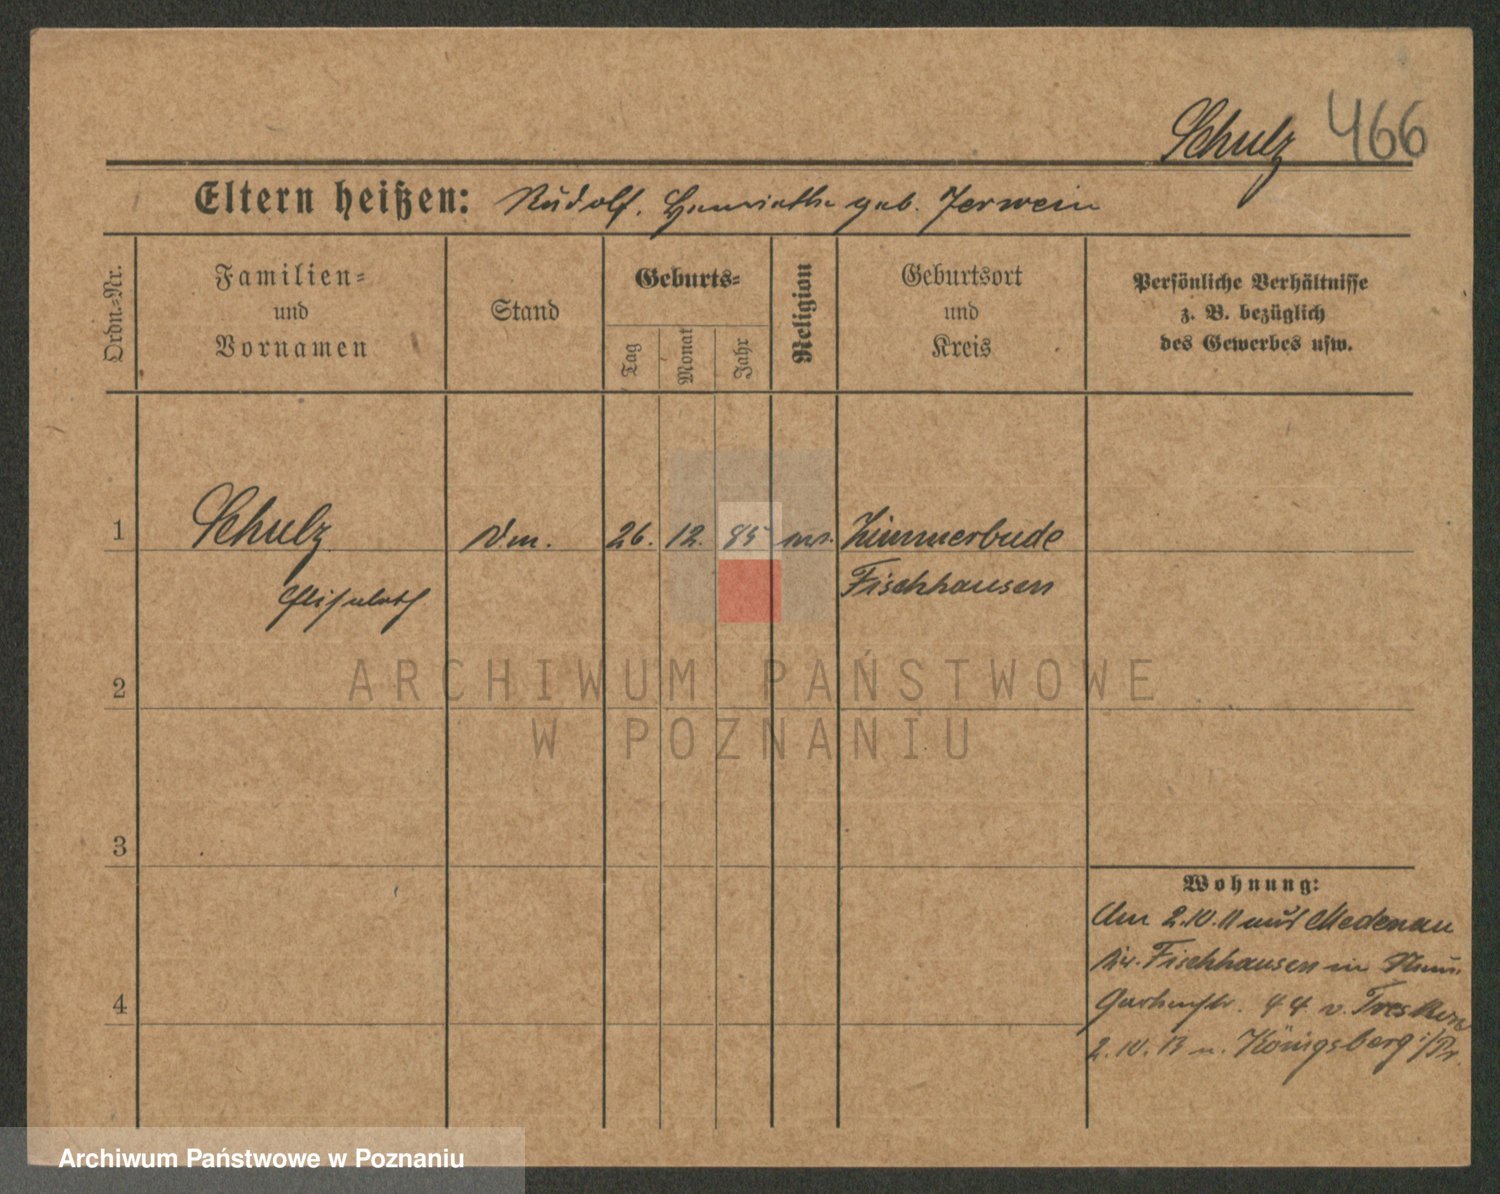 Schulz 466
Eltern heißen: Rudolf, Henriette geb. Jerwein
Ordn.-Nr.
Familien-
und
Vornamen
Stand
Geburts-
Tag
Monat
Jahr
Religion
Geburtsort
und
Kreis
Persönliche Verhältnisse
z. B. bezüglich
des Gewerbes usw.
1 Schulz 26. 12. 85 Zimmerbude
Elisabeth Fischhausen
2
3
4
Wohnung:
Am 2.10.11 aus Medenau
Kr. Fischhausen in
Gartenstr. v.
2.10.13 n. Königsberg i/Pr.
ARCHIWUM PAŃSTWOWE
W POZNANIU
Archiwum Państwowe w Poznaniu